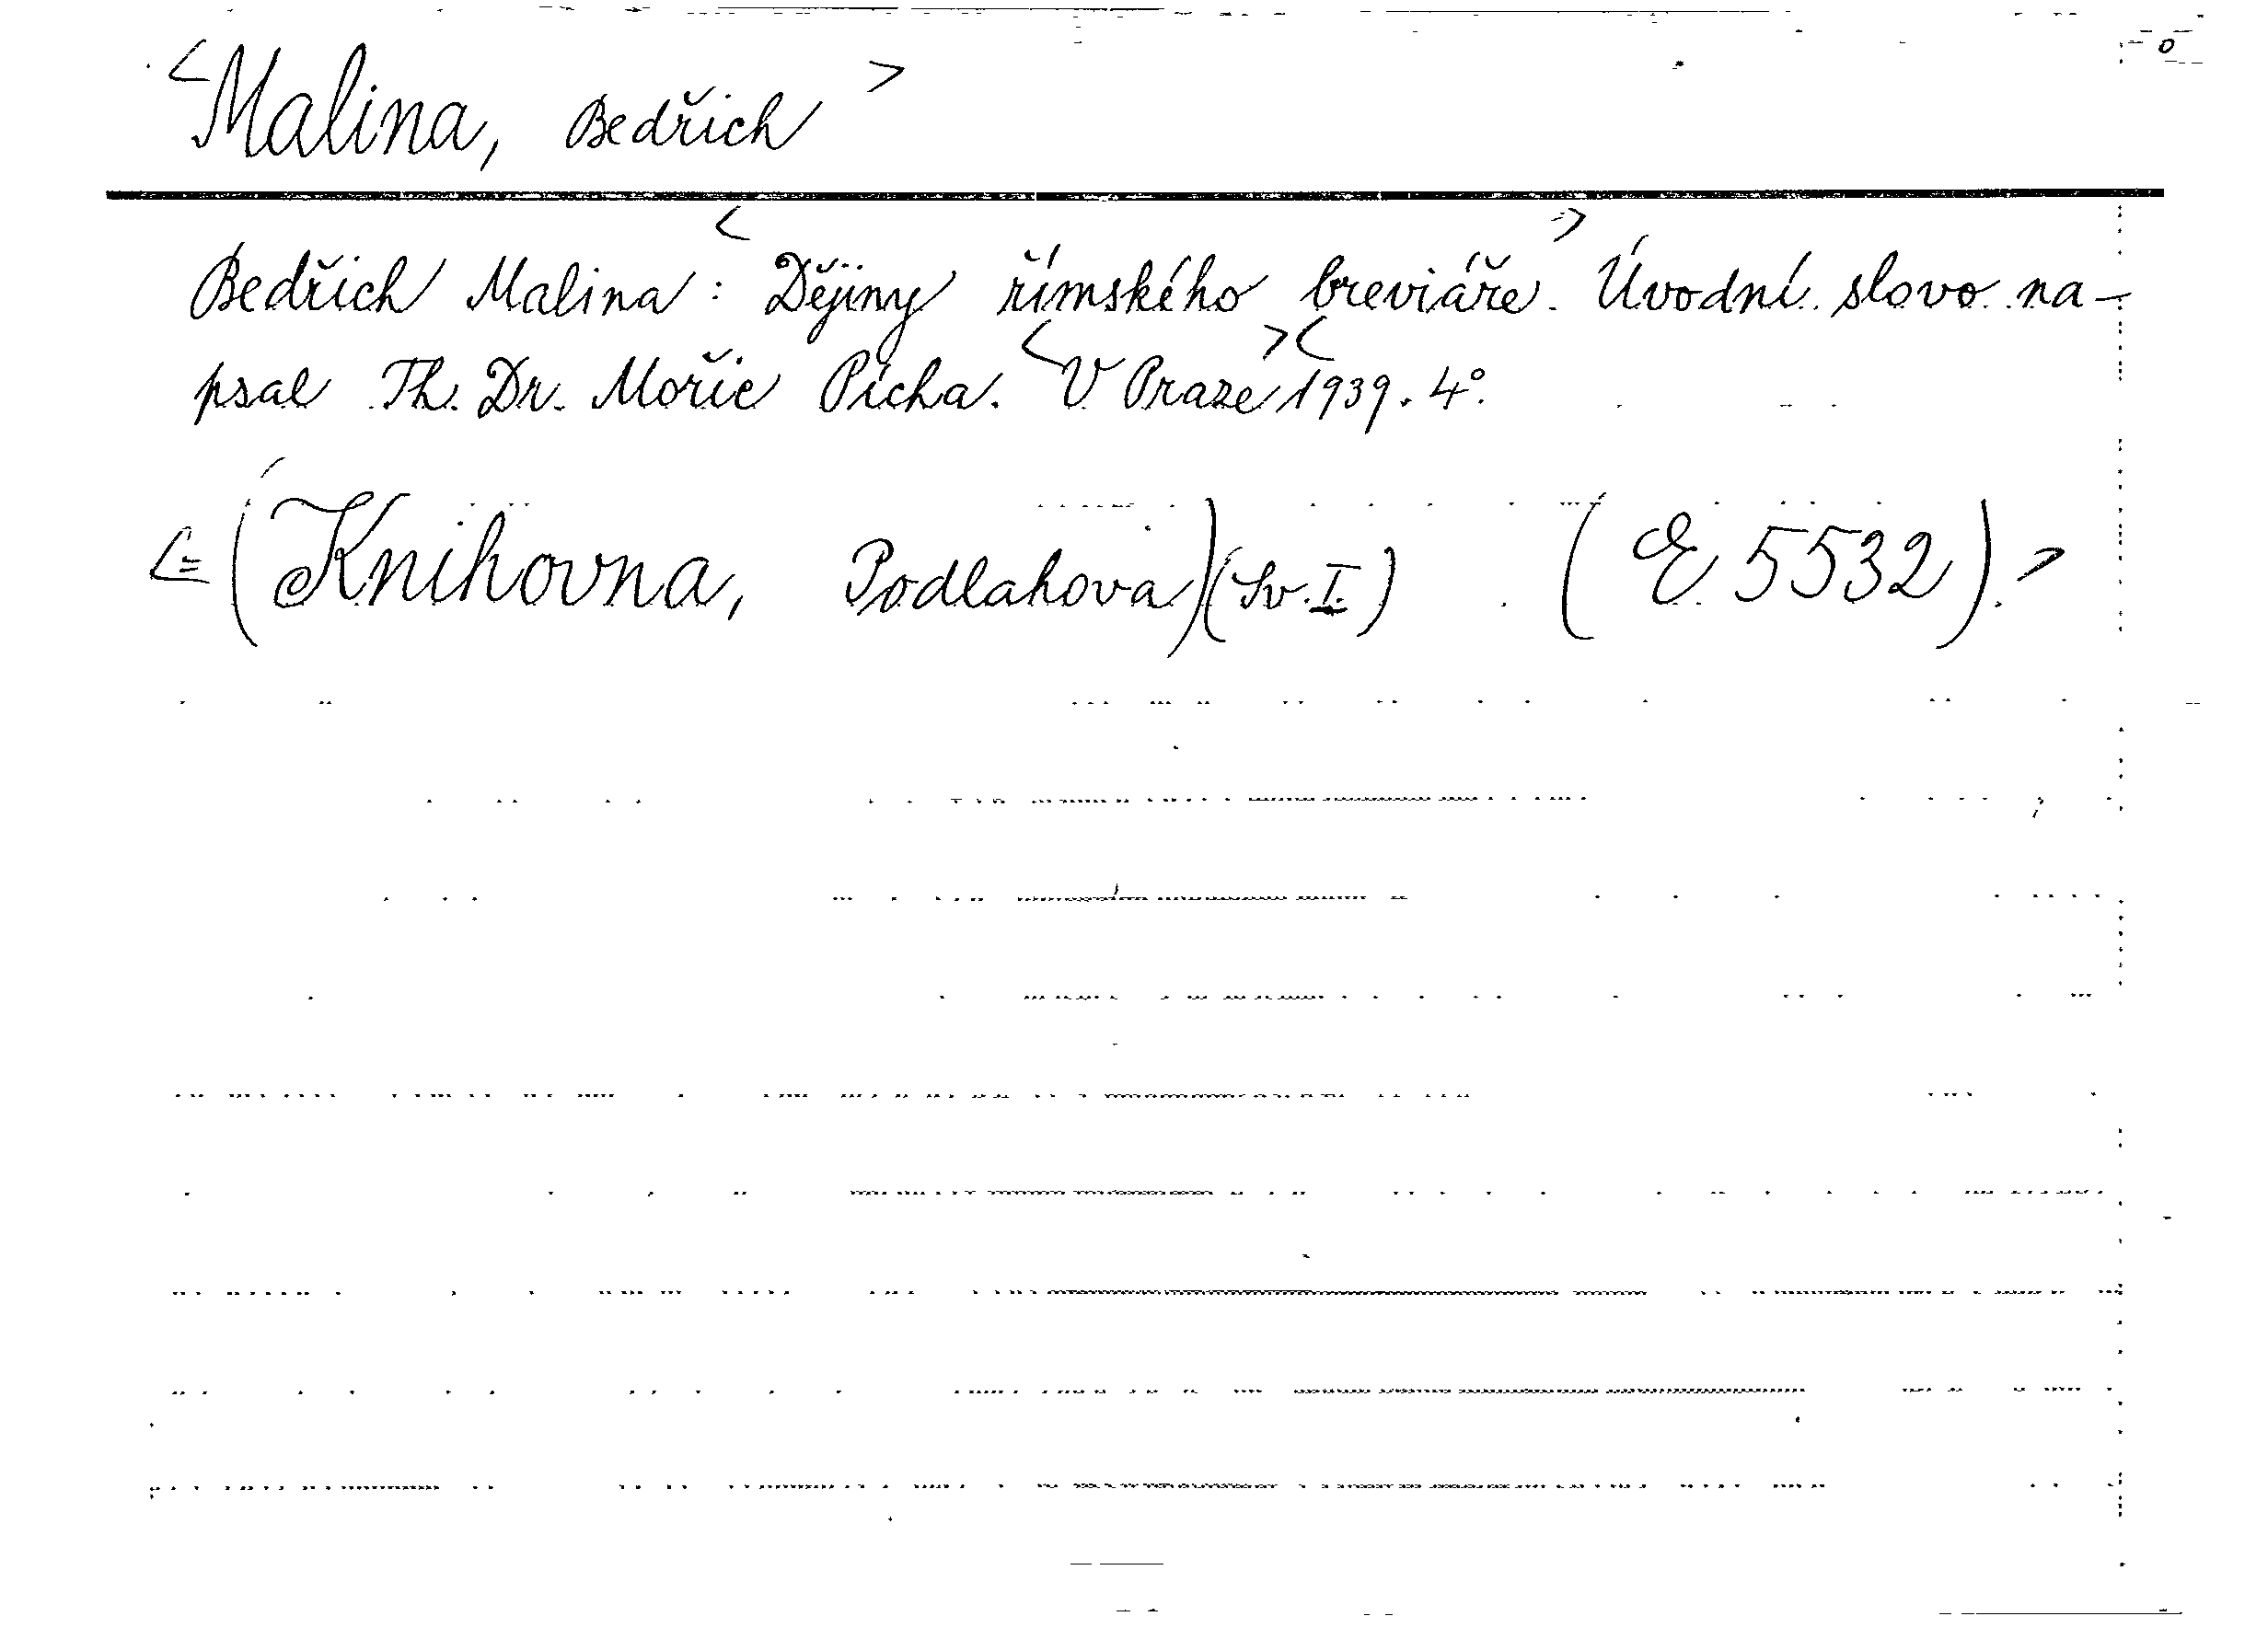 <Malina, Bedřich>
Bedřich Malina: <Dějiny římského breviáře>. Úvodní slovo na-
psal Th. Dr. Mořic Pícha. <V Praze><1939. 4°.
<=(Knihovna, Podlahova)(Sv. I.) (E 5532)>